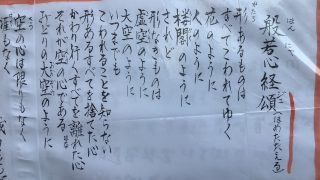 般若心経頌
はん にゃ
形あるものは
すべてこわれてゆく
花のように
人のように
楼閣のように
けれど
形なきものは
虚空のように
大空のように
いつまでも
こわれることを知らない
形あるすべてを捨てた心
かわりゆくすべてを離れた心
それが空の心である
みどりの大空のように
空の心は限りもなく